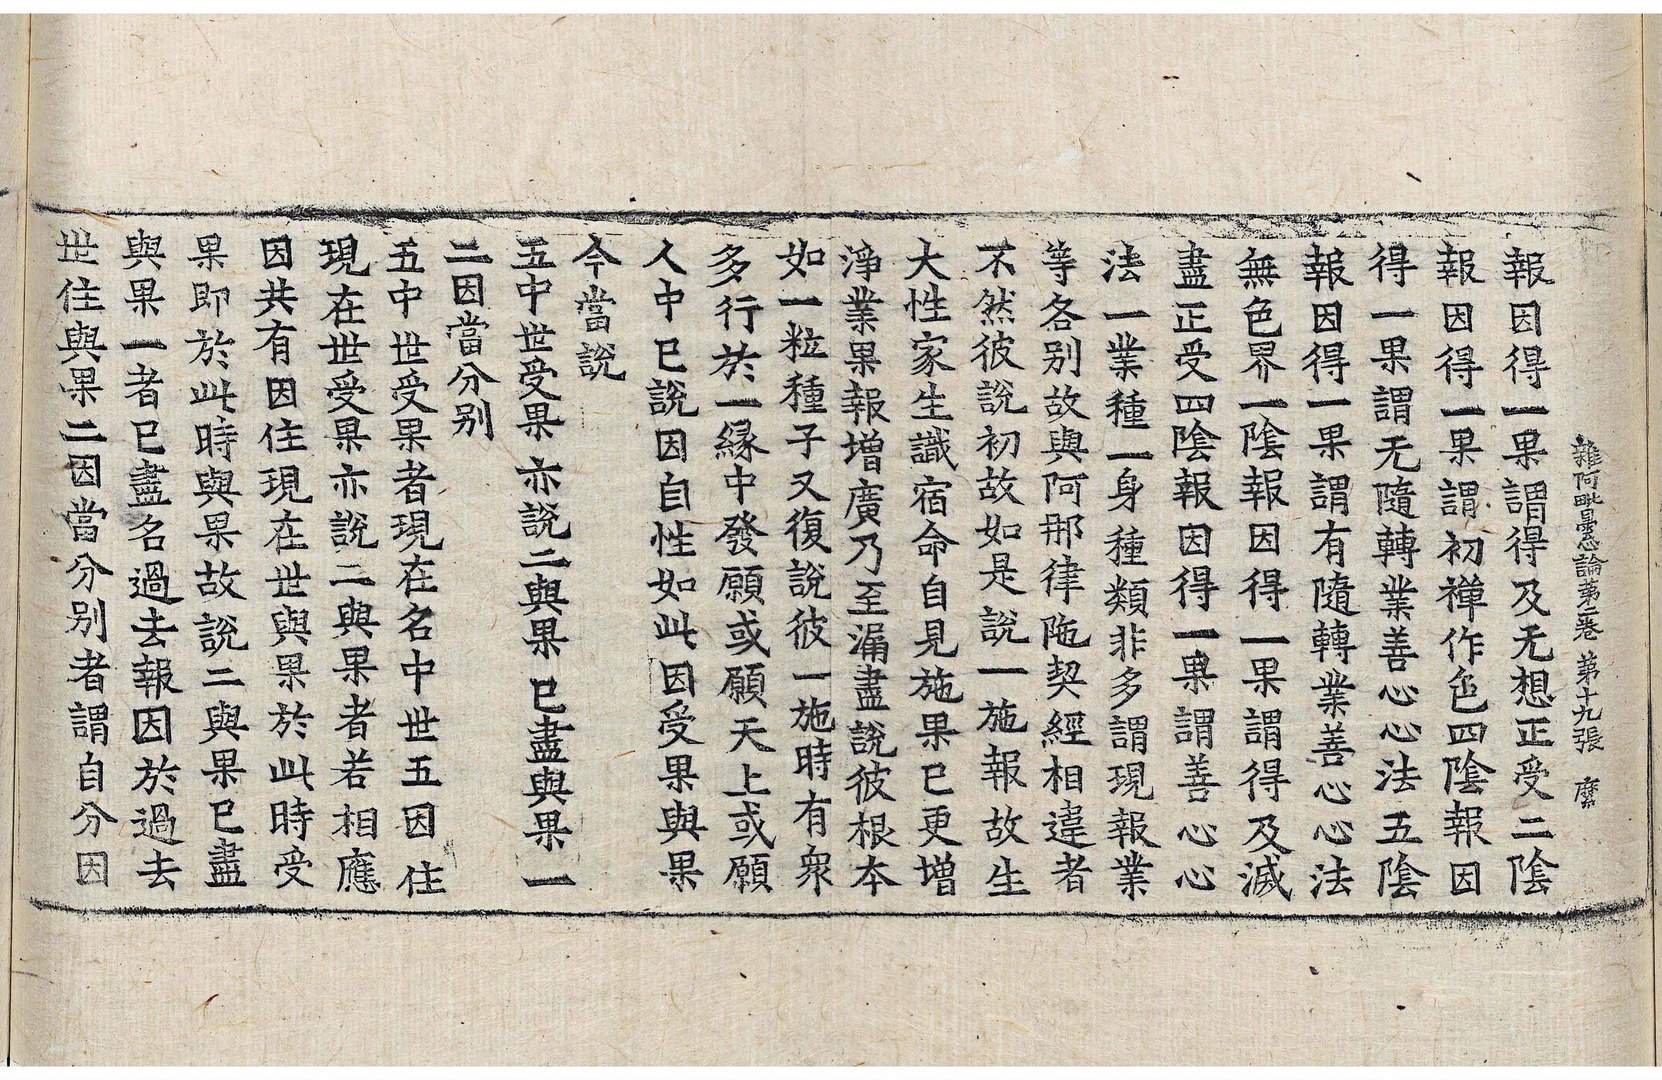 雜阿毗曇心論第二卷 第十九張 縻
報因得一果謂得及无想正受二陰
報因得一果謂初禅作色四陰報因
得一果謂无隨轉業善心心法五陰
報因得一果謂有隨轉業善心心法
無色界一陰報因得一果謂得及滅
盡正受四陰報因得一果謂善心心
法一業種一身種類非多謂現報業
等各別故與阿那律陁契經相違者
不然彼說初故如是說一施報故生
大性家生識宿命自見施果已更增
淨業果報增廣乃至漏盡說彼根本
如一粒種子又復說彼一施時有衆
多行於一緣中發願或願天上或願
人中已說因自性如此因受果與果
今當說
五中世受果 亦說二與果 已盡與果一
二因當分別
五中世受果者現在名中世五因住
現在世受果亦說二與果者若相應
因共有因住現在世與果於此時受
果即於此時與果故說二與果已盡
與果一者已盡名過去報因於過去
世住與果二因當分別者謂自分因